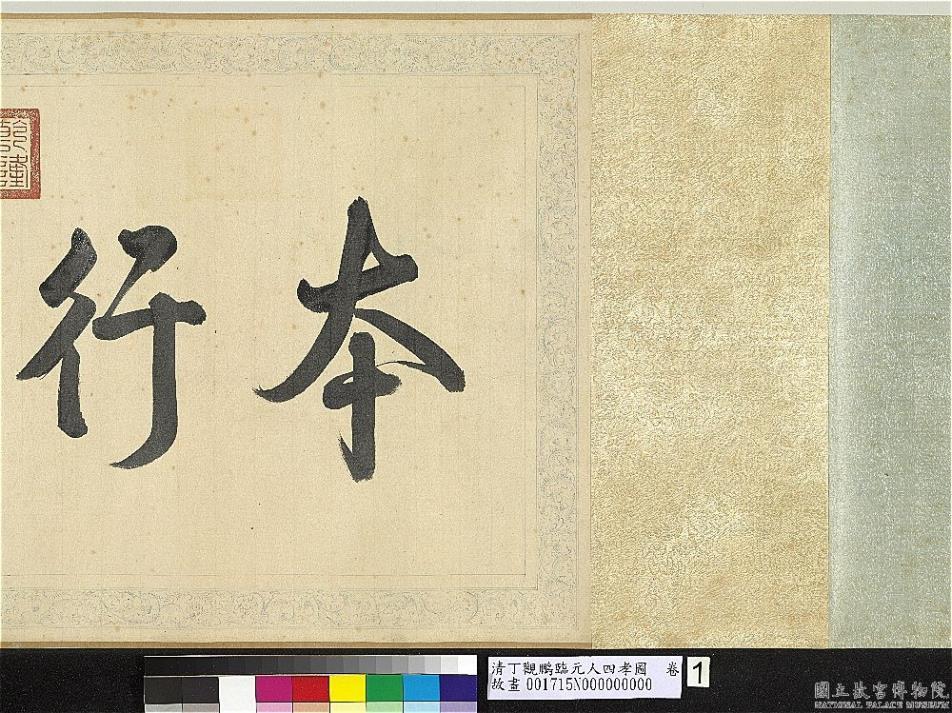 本行
清丁觀鵬臨元人四孝圖 卷 1
故畫 001715N000000000
國立故宮博物院
NATIONAL PALACE MUSEUM